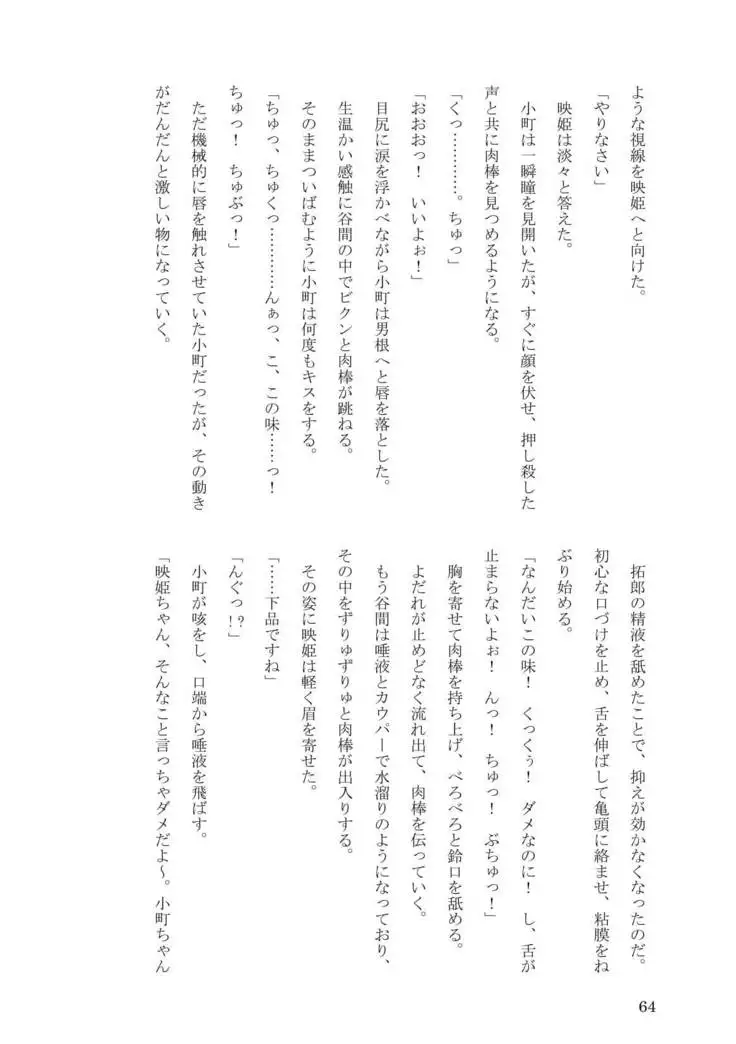 ような視線を映姫へと向けた。
「やりなさい」
映姫は淡々と答えた。
小町は一瞬瞳を見開いたが、すぐに顔を伏せ、押し殺した
声と共に肉棒を見つめるようになる。
「くっ…………。ちゅっ」
「おおおっ！　いいよぉ！」
目尻に涙を浮かべながら小町は男根へと唇を落とした。
生温かい感触に谷間の中でビクンと肉棒が跳ねる。
そのままついばむように小町は何度もキスをする。
「ちゅっ、ちゅくっ…………んぁっ、こ、この味……っ！
ちゅっ！　ちゅぶっ！」
ただ機械的に唇を触れさせていた小町だったが、その動き
がだんだんと激しい物になっていく。
拓郎の精液を舐めたことで、抑えが効かなくなったのだ。
初心な口づけを止め、舌を伸ばして亀頭に絡ませ、粘膜をね
ぶり始める。
「なんだいこの味！　くっくぅ！　ダメなのに！　し、舌が
止まらないよぉ！　んっ！　ちゅっ！　ぶちゅっ！」
胸を寄せて肉棒を持ち上げ、べろべろと鈴口を舐める。
よだれが止めどなく流れ出て、肉棒を伝っていく。
もう谷間は唾液とカウパーで水溜りのようになっており、
その中をずりゅずりゅと肉棒が出入りする。
その姿に映姫は軽く眉を寄せた。
「……下品ですね」
「んぐっ!?」
小町が咳をし、口端から唾液を飛ばす。
「映姫ちゃん、そんなこと言っちゃダメだよ～。小町ちゃん
64